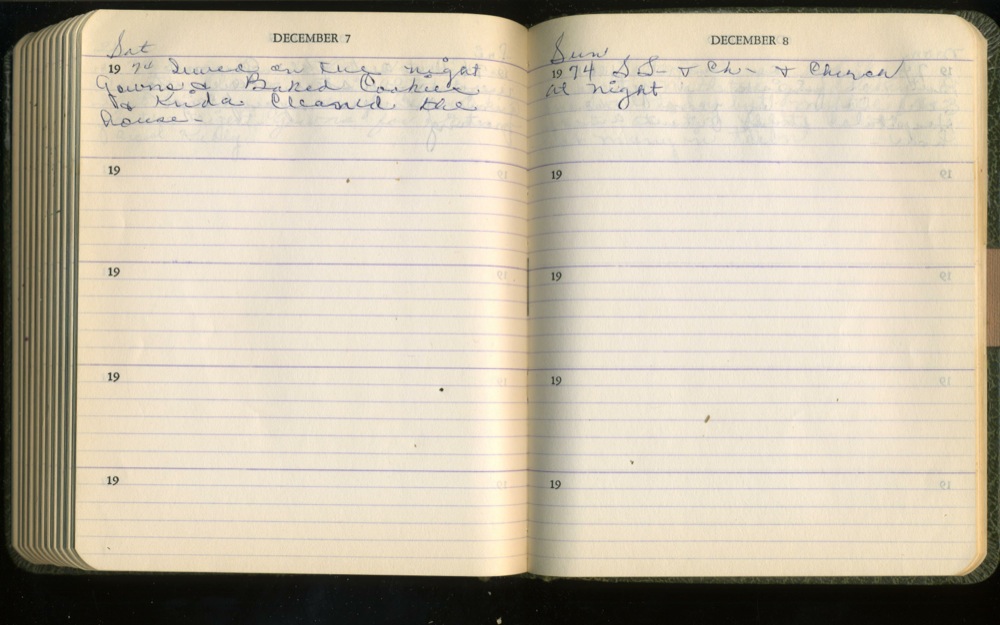 DECEMBER 7
Sat
1974 Sewed on the night
Gowns & Baked Cookies
& Kinda Cleaned the
house-
19
19
19
19
DECEMBER 8
Sun
1974 SS- & Ch- & Church
at night
19
19
19
19